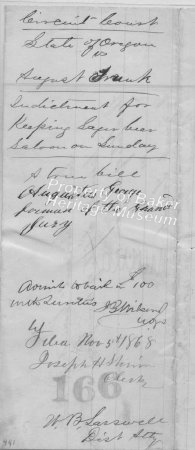 Circuit Court
State of Oregon
vs
August Frank
Indictment for
Keeping Lager beer
Saloon on Sunday
A true bill
Augustus
foreman of the Grand
Jury
Admits to bail in $100
with sureties
Filed Nov 5th 1868
Joseph H Shinn
Clerk
166
W. B. Lasswell
Dist Atty
Property of Baker
Heritage Museum